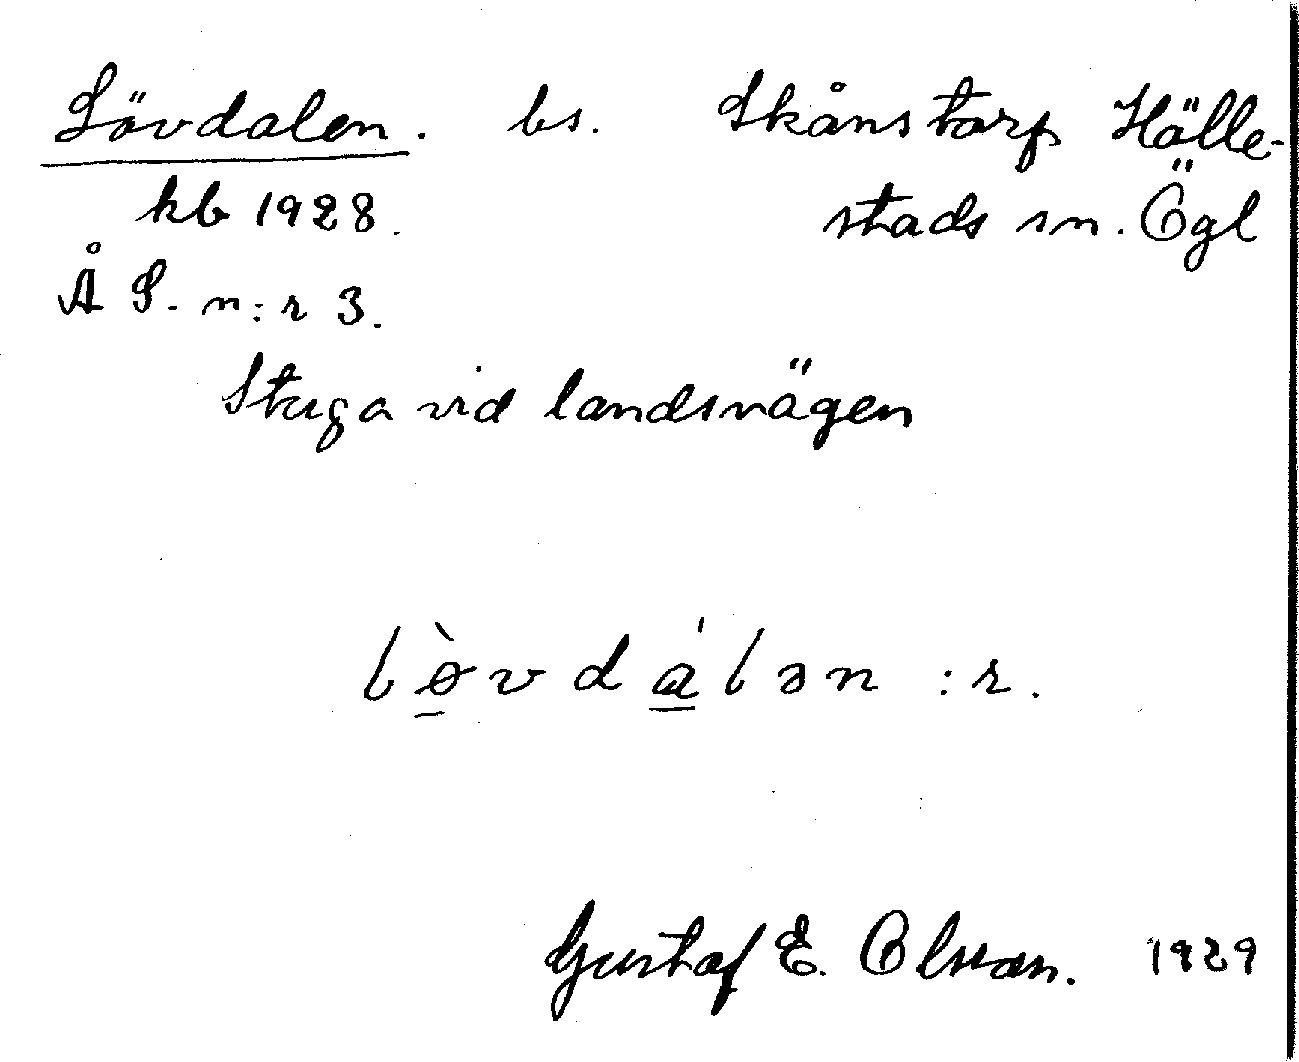 Lövdalen. bs. Skånstorp Hälle-
kb 1928. stads sn. Ögl
Å S. n:r 3.
Stuga vid landsvägen
lø̀vdálən :r.
Gustaf E. Olsson. 1929